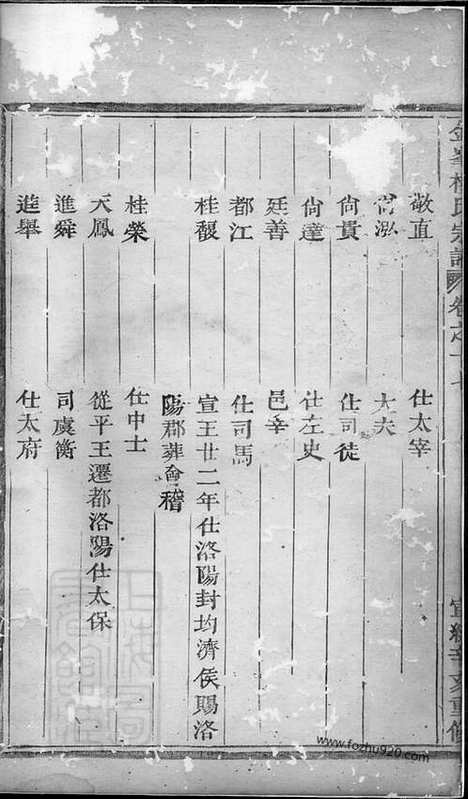 金峯林氏宗譜 卷之十七 宣統辛亥重修
敬直 仕太宰
尚泓 大夫
尚貴 仕司徒
尙達 仕左史
廷善 邑宰
都江 仕司馬
桂馥 宣王廿二年仕洛陽封均濟侯賜洛
陽郡葬會稽
桂榮 仕中士
天鳳 從平王遷都洛陽仕太保
進舜 司虞衡
進舉 仕太府
www.fozhu920.com